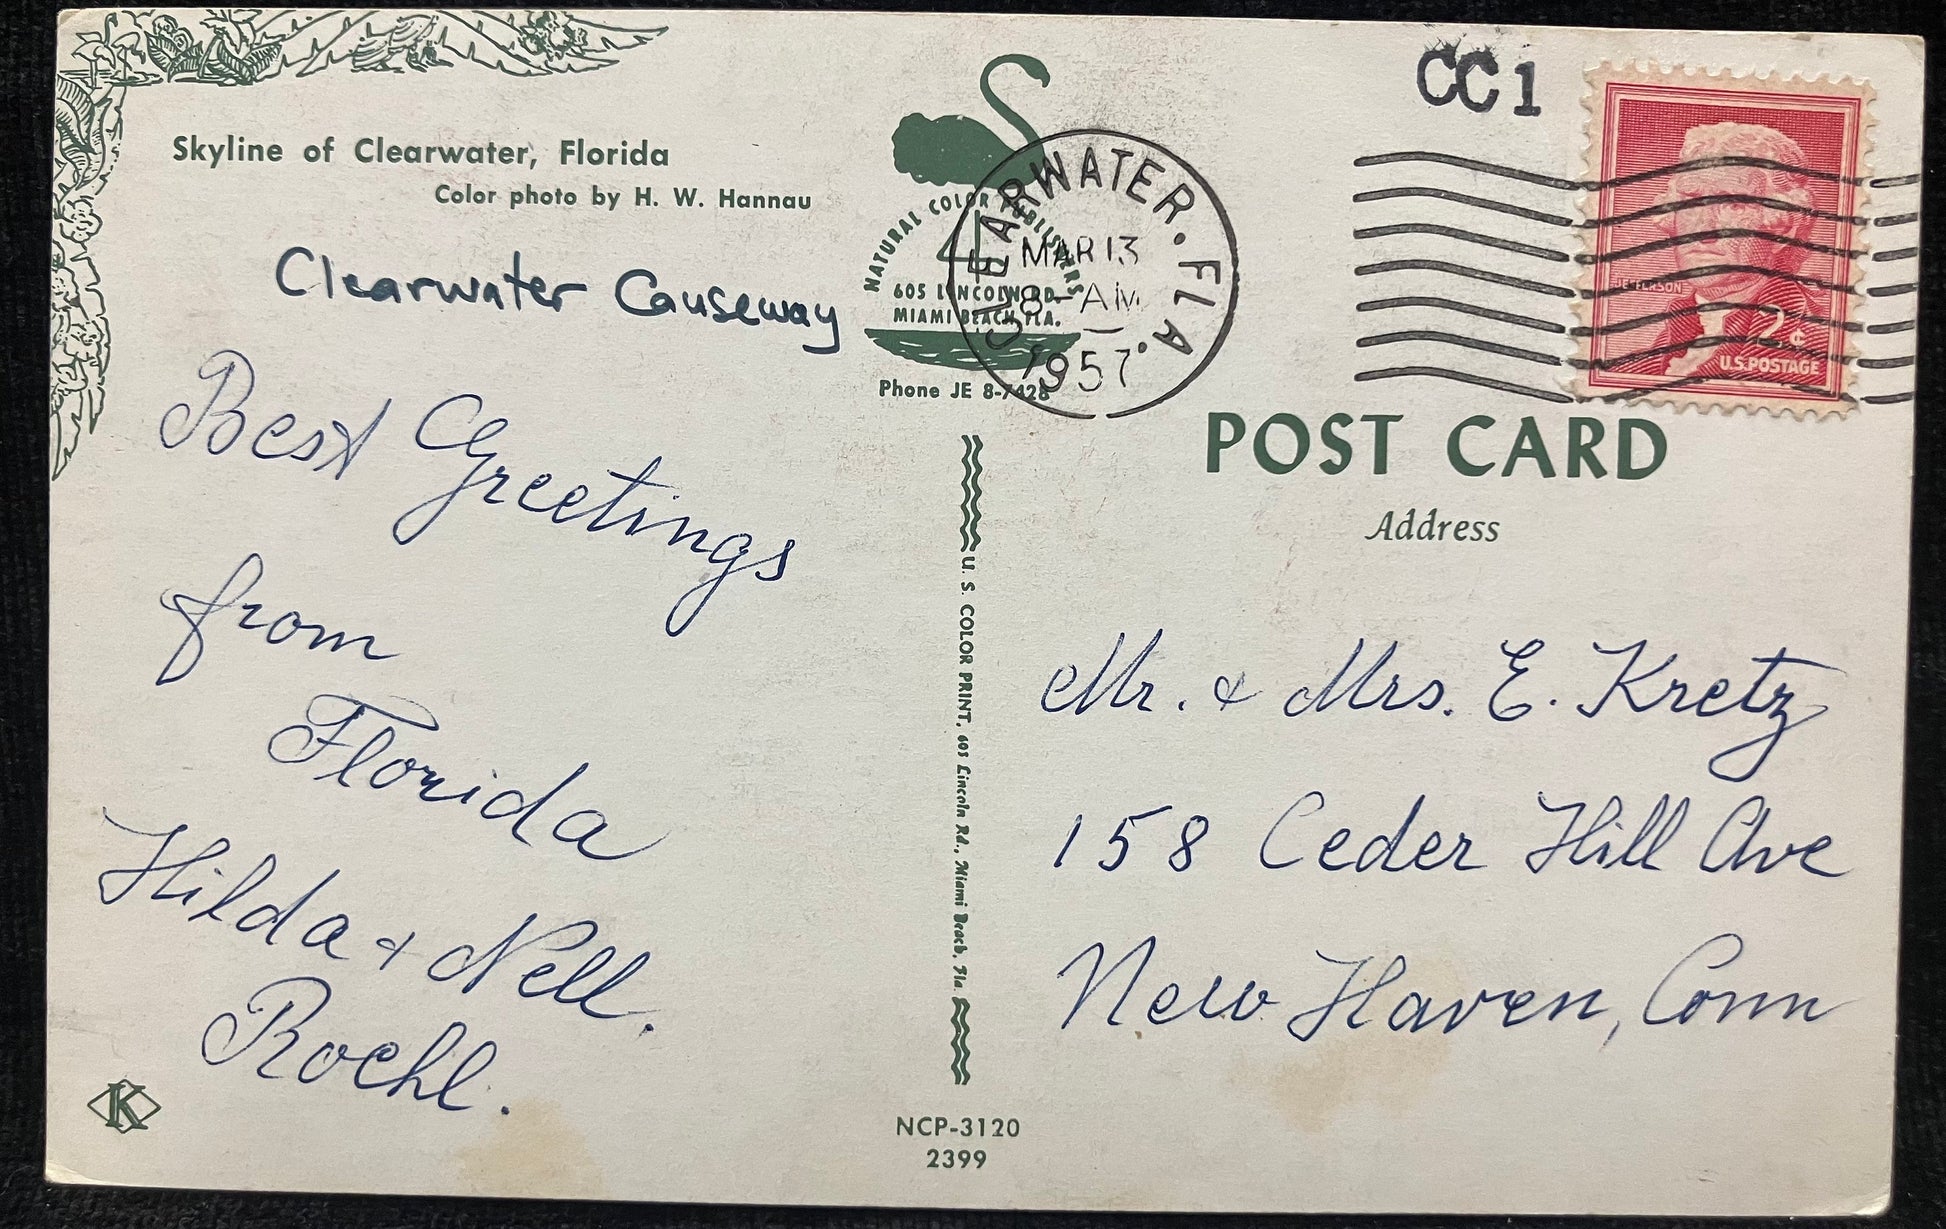 Skyline of Clearwater, Florida
Color photo by H. W. Hannau
Clearwater Causeway
Best Greetings
from
Florida
Hilda & Nell.
Roehl.
K
NATURAL COLOR PUBLISHERS
605 LINCOLN RD.
MIAMI BEACH, FLA.
Phone JE 8-7428
CLEARWATER. FLA.
MAR 13
8 - AM
1957
U. S. COLOR PRINT, 601 Lincoln Rd., Miami Beach, Fla.
NCP-3120
2399
CC 1
JEFFERSON
2¢
U.S. POSTAGE
POST CARD
Address
Mr. & Mrs. E. Kretz
158 Ceder Hill Ave
New Haven, Conn